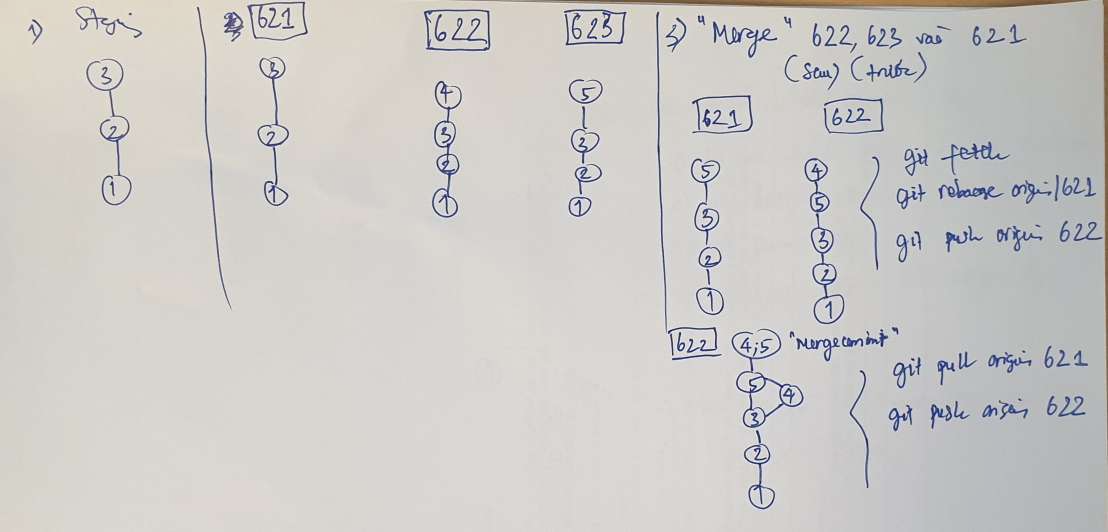 1)
621
622
623
3
2
1
3
2
1
4
3
2
1
5
3
2
1
"Merge" 622, 623 vào 621
(sau) (trước)
621
622
5
3
2
1
4
5
3
2
1
git fetch
git rebase origin/621
git push origin 622
622
4;5
"Merge commit"
5
4
3
2
1
git pull origin 621
git push origin 622